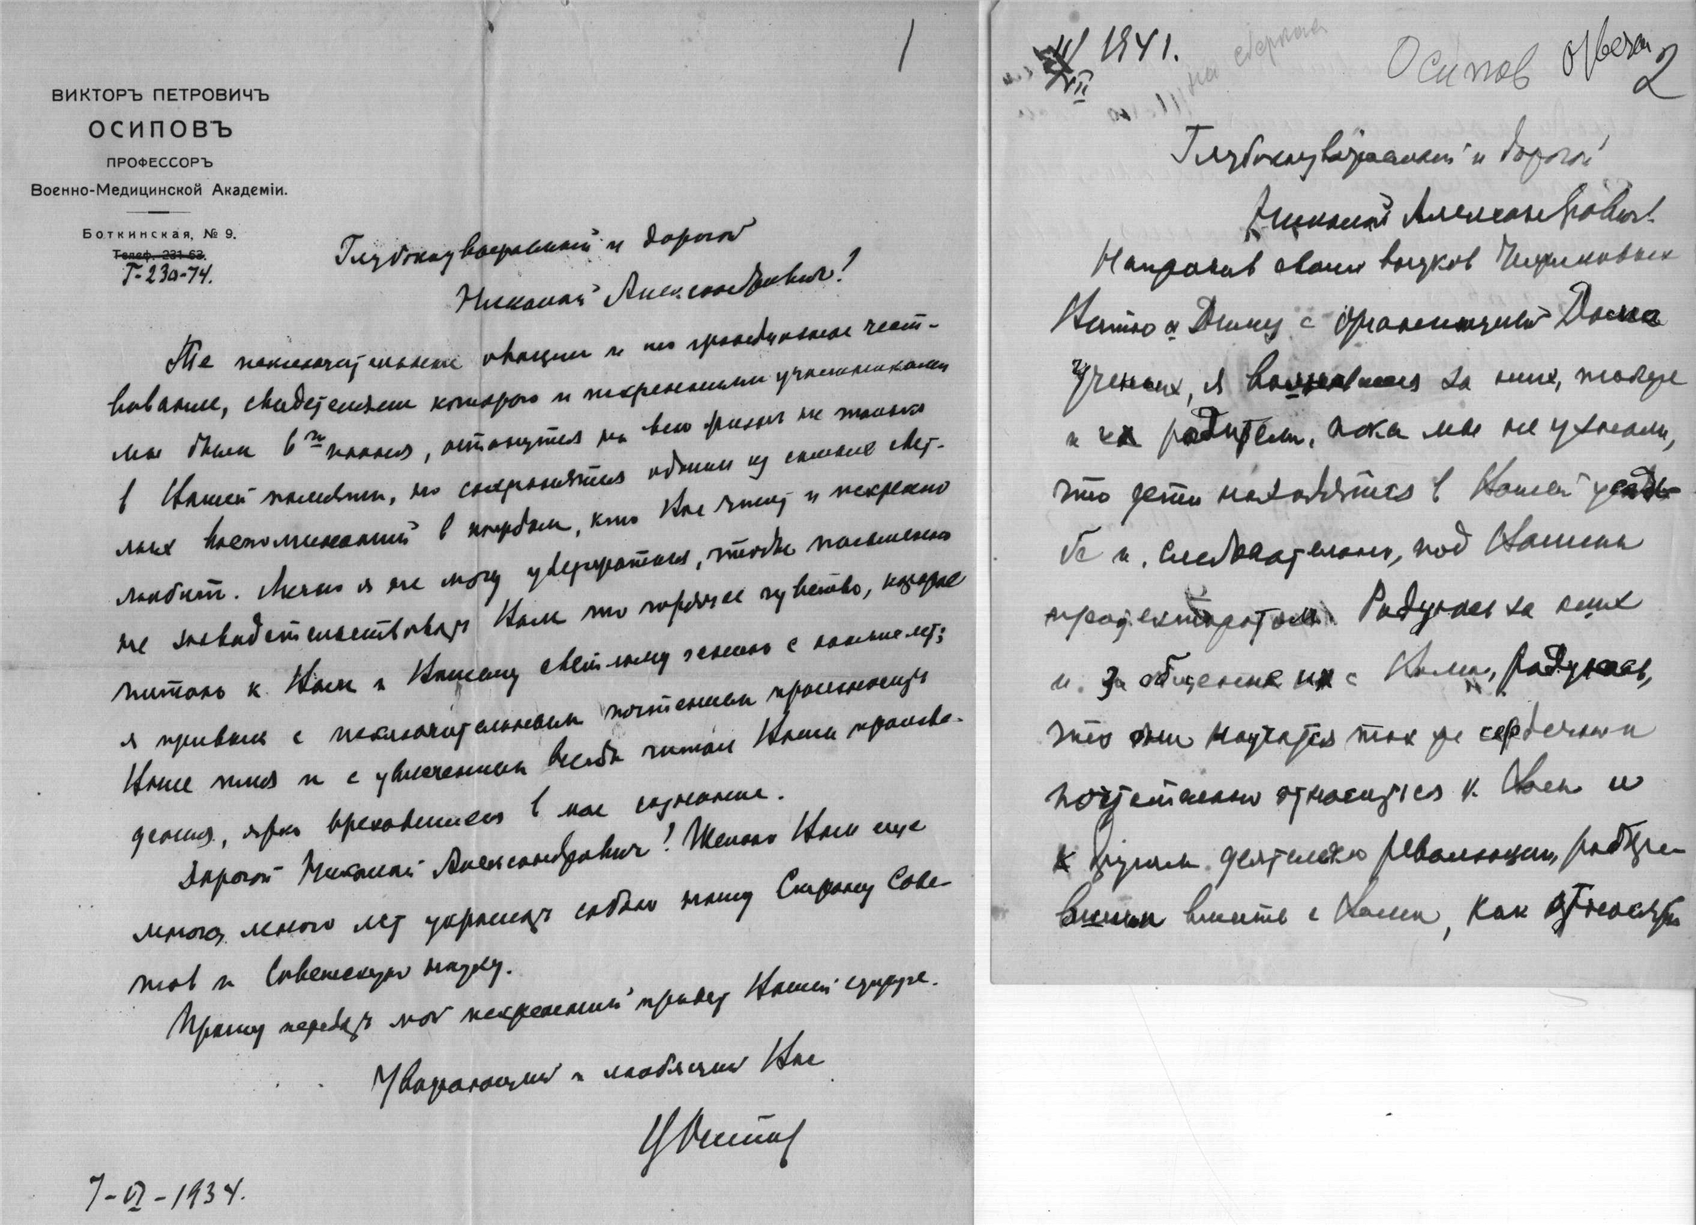 1
ВИКТОРЪ ПЕТРОВИЧЪ
ОСИПОВЪ
ПРОФЕССОРЪ
Военно-Медицинской Академіи.
Боткинская, № 9.
Телеф. 231-63.
Г-230-74.
Глубокоуважаемый и дорогой
Николай Александрович!
Те исключительные овации и то грандиозное чест-
вование, свидетелями которого и искренними участниками
мы были 6го июня, останутся на всю жизнь не только
в Вашей памяти, но сохранятся одним из самых свет-
лых воспоминаний в каждом, кто Вас чтит и искренно
любит. Лично я не могу удержаться, чтобы письменно
не засвидетельствовать Вам то горячее чувство, которое
питаю к Вам и Вашему светлому гению с юных лет;
я привык с исключительным почтением произносить
Ваше имя и с увлечением всегда читал Ваши произве-
дения, ярко врезавшиеся в мое сознание.
Дорогой Николай Александрович! Желаю Вам еще
много, много лет украшать собою нашу Страну Сове-
тов и Советскую науку.
Прошу передать мой искренний привет Вашей супруге.
Уважающий и любящий Вас
В Осипов
7-VI-1934.
VII 1941.
Осипов
2
Глубокоуважаемый и дорогой
Николай Александрович!
Направив своих внуков
Натю и Диму с организацией Дома
Ученых, я волновался за них, также
и их родители, пока мы не узнали,
что дети находятся в Вашей усадь-
бе и, следовательно, под Вашим
протекторатом. Радуюсь за них
и за общение их с Вами, радуюсь,
что они научатся так же сердечно и
почтительно относиться к Вам и
к другим деятелям революции,
вместе с Вами, как относятся